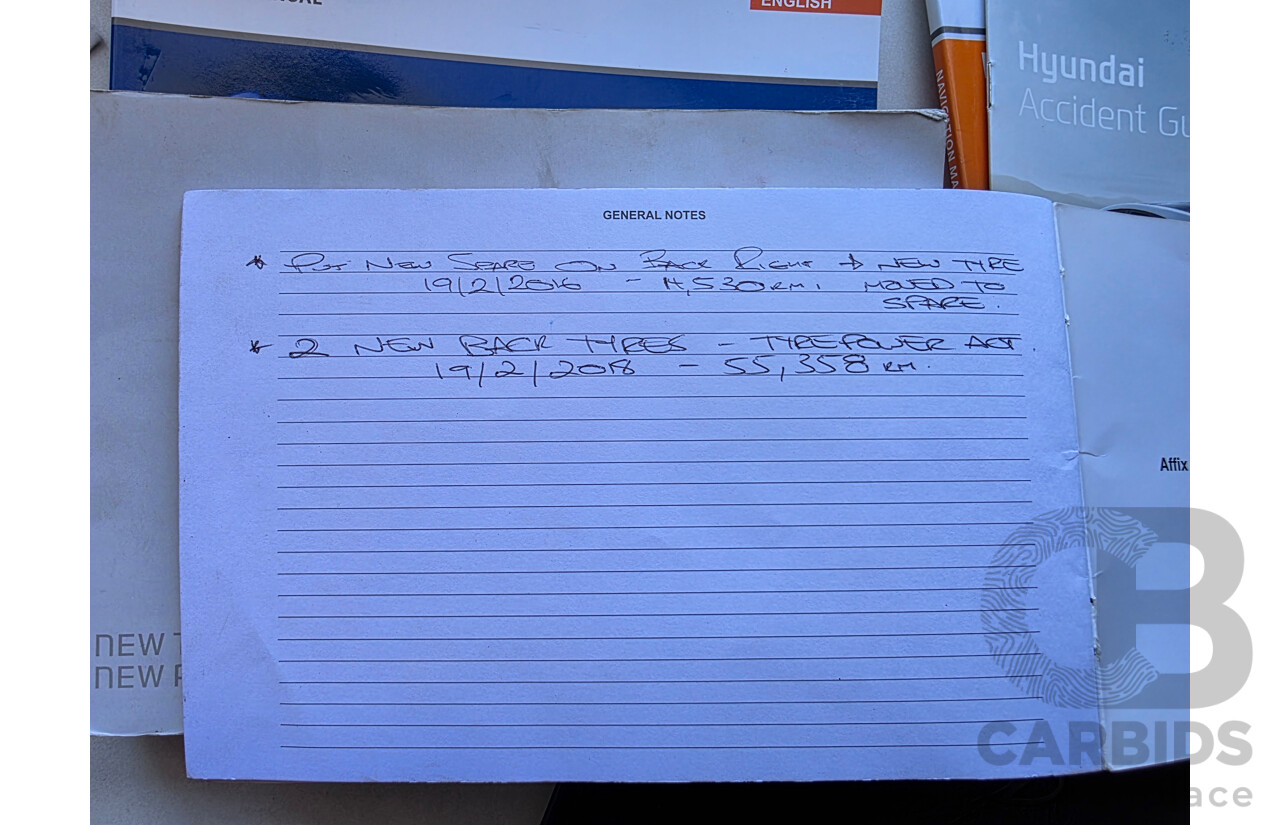 ENGLISH
Hyundai
Accident Gu
NAVIGATION MA
GENERAL NOTES
* Put New Spare On Back Right → NEW TYRE
19/2/2016 - 14,530 KM. MOVED TO
SPARE.
* 2 NEW BACK TYRES - TYREPOWER ACT.
19/2/2018 - 55,358 KM.
Affix
NEW
NEW
CARBIDS
ace